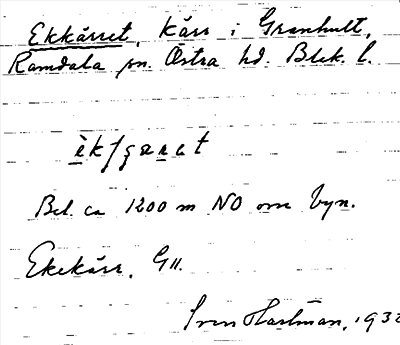 Ekkärret, Kärr i Granhult,
Ramdala sn. Östra hd. Blek. l.
Bel. ca 1200 m NO om byn.
Ekekärr, GK.
Sven Hartman, 193